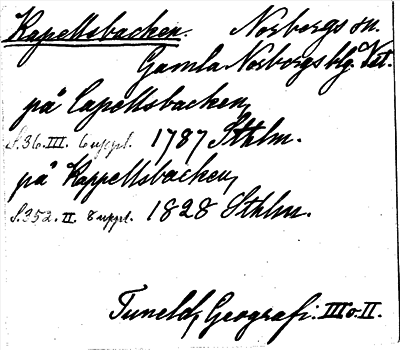 Kapellsbacken. Norbergs sn.
Gamla Norbergs blg. Vst.
på Capellsbacken,
S.36.III. 6 uppl. 1787 Sthlm.
på Kappellsbacken,
S.352.II. 8 uppl. 1828 Sthlm.
Tuneld, Geografi. III o. II.